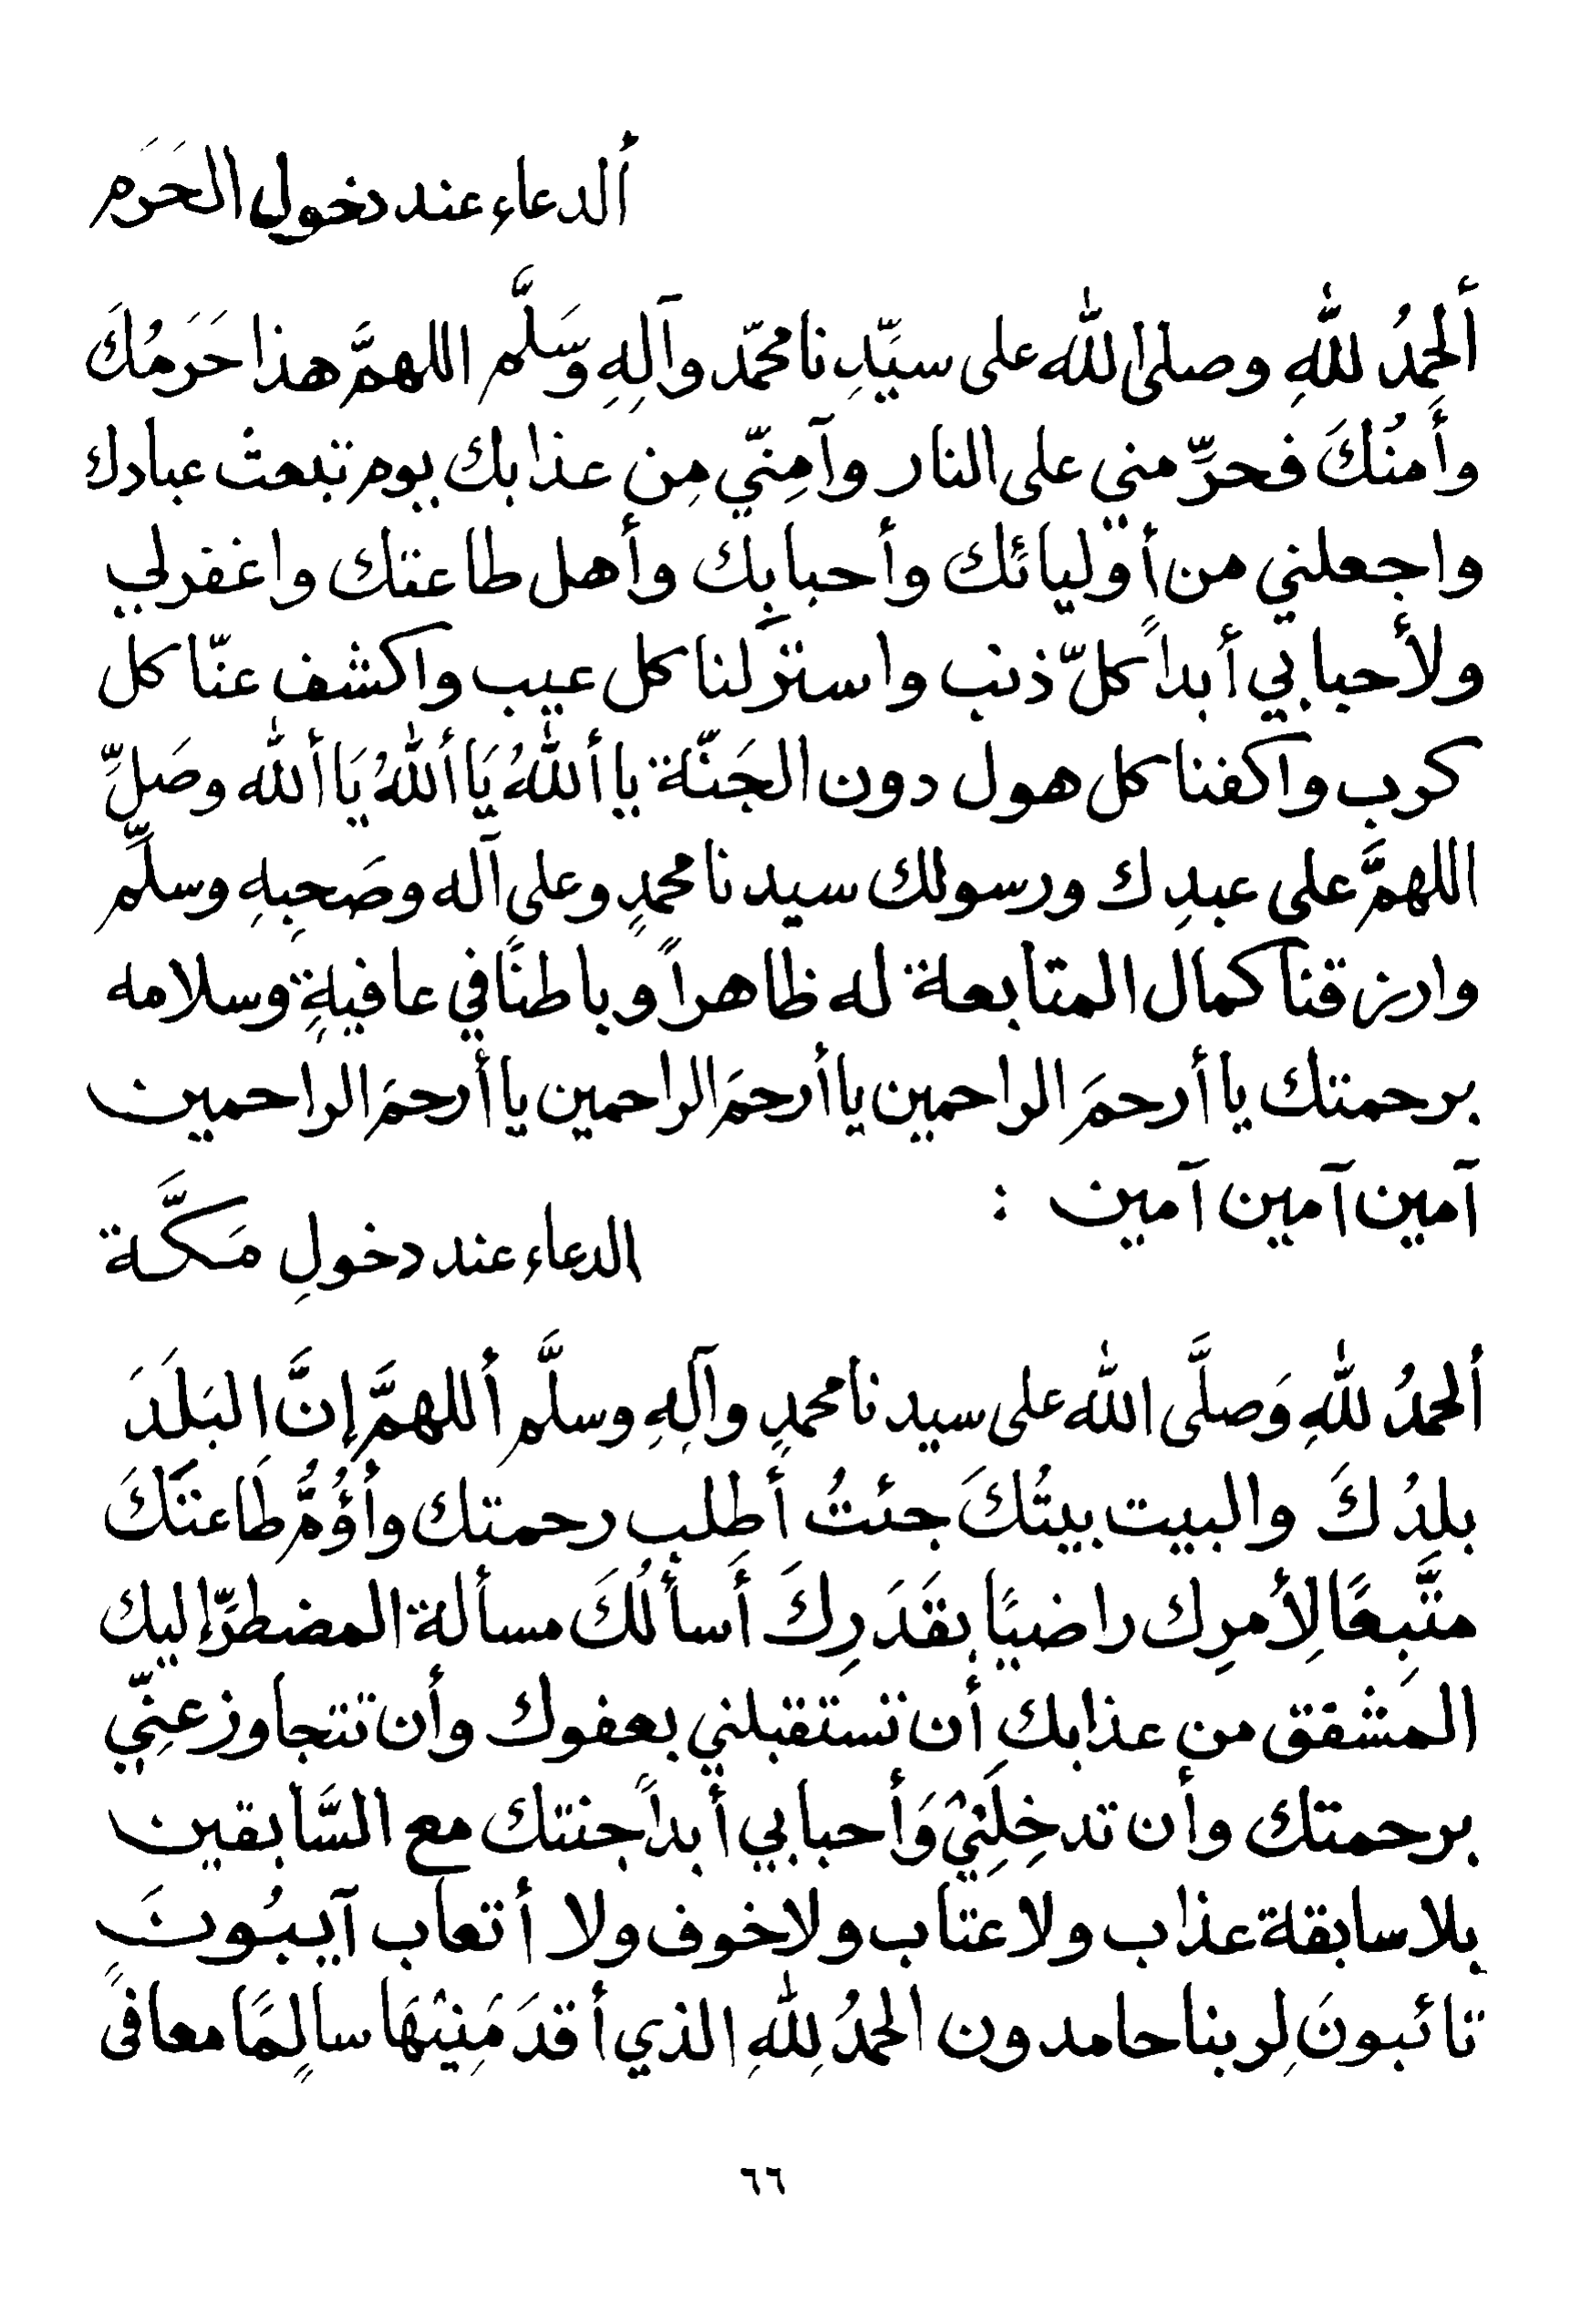 ألدعاء عند دخول الحَرَم
ألحمدُ للهِ وصلى الله على سيِّدِنا محمّد وآلِهِ وَسَلَّم اللهمَّ هذا حَرَمُكَ
وأَمنُكَ فحرِّمني على النار وآمِنّي مِن عذابك يوم تبعث عبادك
واجعلني من أوليائك وأحبابِك وأهل طاعتك واغفرلي
ولأحبابي أبداً كلّ ذنب واسترلنا كل عيب واكشف عنّا كل
كرب واكفنا كل هول دون الجَنّة يا أللهُ يَا أللهُ يَا ألله وصَلِّ
اللهمَّ على عبدِك ورسولك سيدنا محمدٍ وعلى آله وصَحبِهِ وسلِّم
وارزقنا كمال المتابعة له ظاهراً وباطنًا في عافيةٍ وسلامه
برحمتك يا أرحمَ الراحمين يا أرحمَ الراحمين يا أرحمَ الراحمين
آمين آمين آمين :
الدعاء عند دخولِ مَكَّة
ألحمدُ للهِ وَصلَّى الله على سيدنا محمدٍ وآلِهِ وسلَّم أللهمَّ إنَّ البَلَدَ
بلدُكَ والبيت بيتُكَ جئتُ أطلب رحمتك وأؤُمُّ طَاعتَكَ
متَّبِعًا لِأمرِك راضيًا بقَدَرِكَ أَسألُكَ مسألة المضطرِّ إليك
المشفق من عذابك أن تستقبلني بعفوك وأن تتجاوز عنِّي
برحمتك وأن تدخِلَنِيْ وَأحبابي أبداً جنتك مع السَّابقين
بلا سابقة عذاب ولا عتاب ولا خوف ولا أتعاب آيبُونَ
تائبونَ لِربنا حامدون الحمدُ لِلهِ الذي أقدَمَنِيْهَا سالِمًا معافىً
٦٦